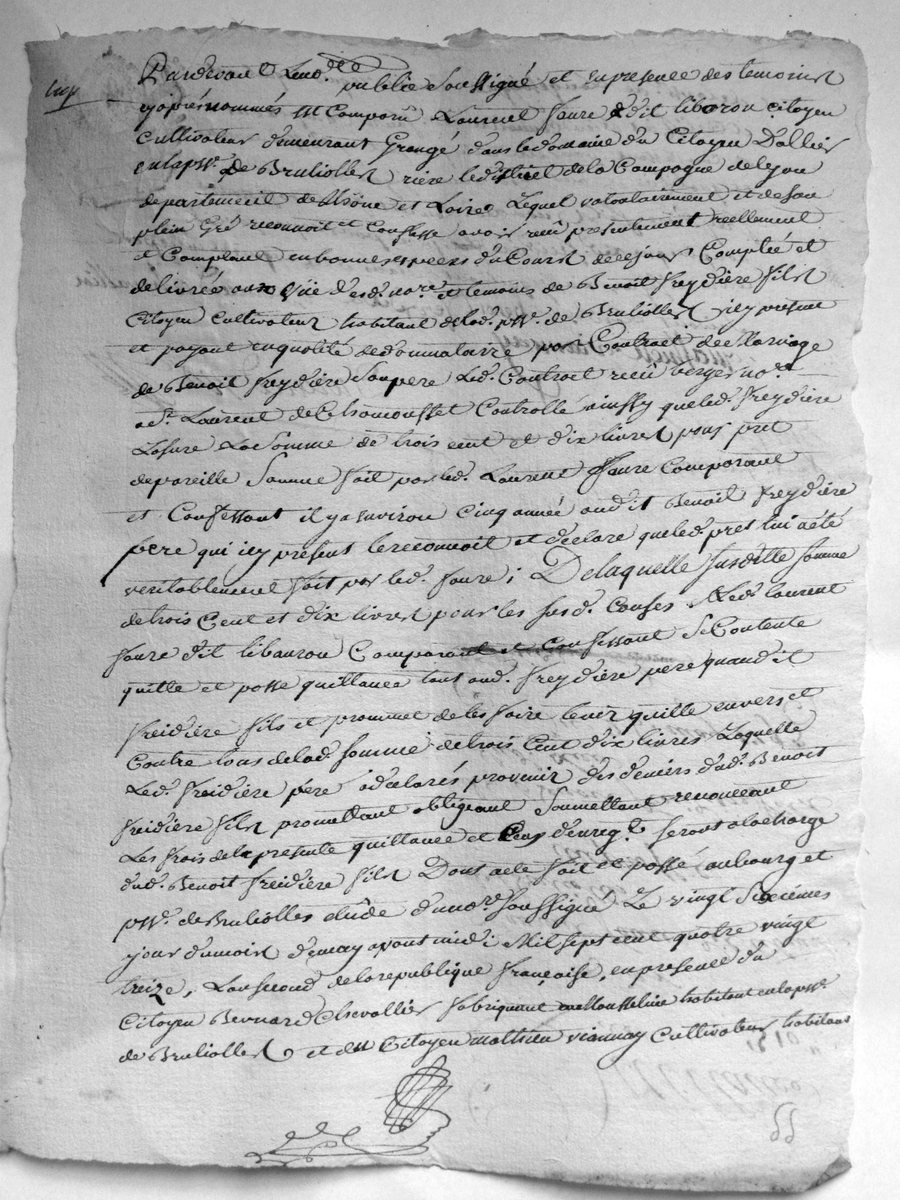 Pardevant Le no.re
publicq Soussigné et en presence des temoins
cy après nommés est Comparu Laurent faure dit liboron Citoyen
Cultivateur demeurant Grangé dans le domaine du Citoyen Dallier
en la psse. de Brullioles rière le district de la Campagne de Lyon
departement de Rhône et Loire, Lequel volontairement et de son
plein Gré reconnoit et Confesse avoir recû presentement reellement
et Comptant en bonnes especes du Cours de ce jour Comptée et
delivrée aux vüe desd. no.re et temoins de Benoit freydière fils
Citoyen Cultivateur habitant de lad. psse. de Brullioles icy present
et payant en qualité de donnataire par Contract de Mariage
de Benoit freydière Son pere Led. Contract recû no.re
à St. Laurent de Chamousset Controllé ainssy que led. freydière
L'asure La Somme de trois cent et dix livres pour pret
de pareille Somme fait par led. Laurent faure Comparant
et Confessant il y a environ Cinq année audit Benoit freydière
pere qui icy present le reconnoit et declare que led. pret lui a été
veritablement fait par led. faure ; De laquelle Susditte Somme
de trois Cent et dix livres pour les susd. Causes Led. laurent
faure dit libauron Comparant et Confessant Se Contente
quitte et passe quittance tant aud. freydière pere quand it
freidière fils et prommet de les faire tenir quitte envers et
Contre tous de lad. Somme de trois Cent dix livres Laquelle
Led. freidière pere à declarés provenir des deniers dud. Benoit
freidière fils promettant obligeant Soumettant renonceant
Les frais de la presente quittance et d'enreg.t Seront à la charge
dud. Benoit freidière fils Dont acte fait et passé au bourg et
psse. de Brullioles etûde du no.re Soussigné Le vingt Sixciémes
jour du mois de may avant midi Mil sept cent quatre vingt
treize, L'an second de la republique françoise, en presence du
Citoyen Bernard Chevallier fabriquant en Mousseline habitant en la psse.
de Brullioles et du Citoyen mathieu viannay Cultivateur habitans